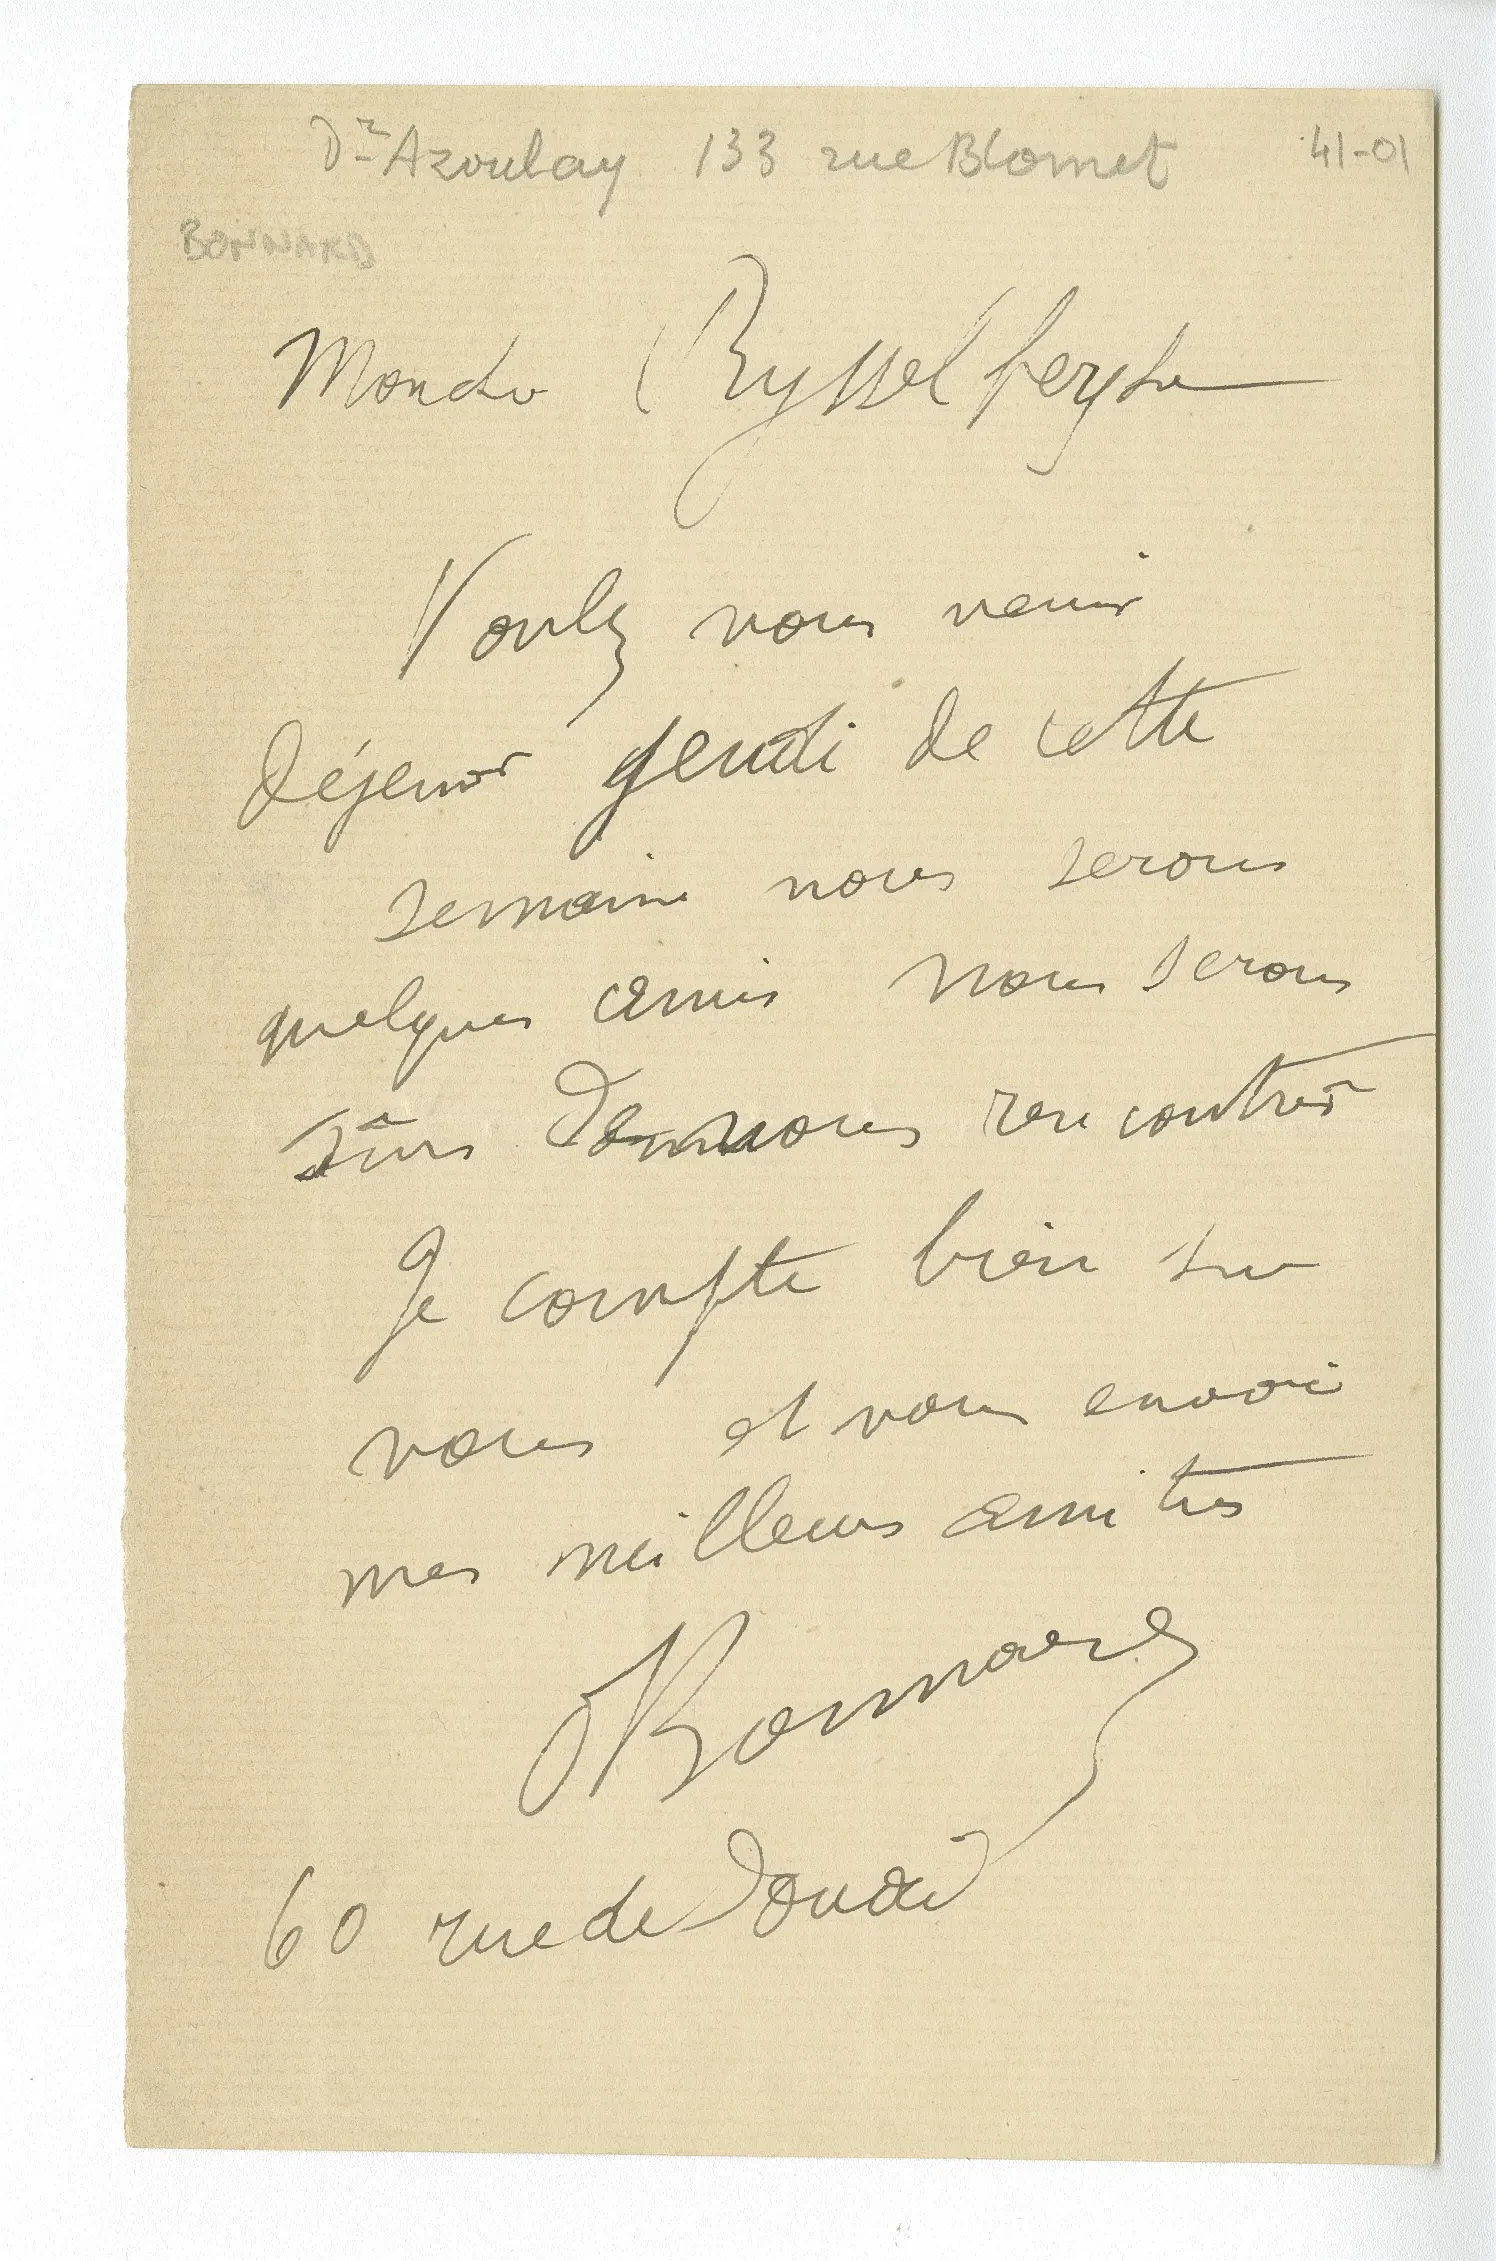 Dr Azoulay 133 rue Blomet 41-01
BONNARD
Mon cher Rysselberghe
Voulez vous venir
déjeuner jeudi de cette
semaine nous serons
quelques amis nous serons
sûrs de nous rencontrer
Je compte bien sur
vous et vous envoi
mes meilleurs amitiés
Bonnard
60 rue de Douai